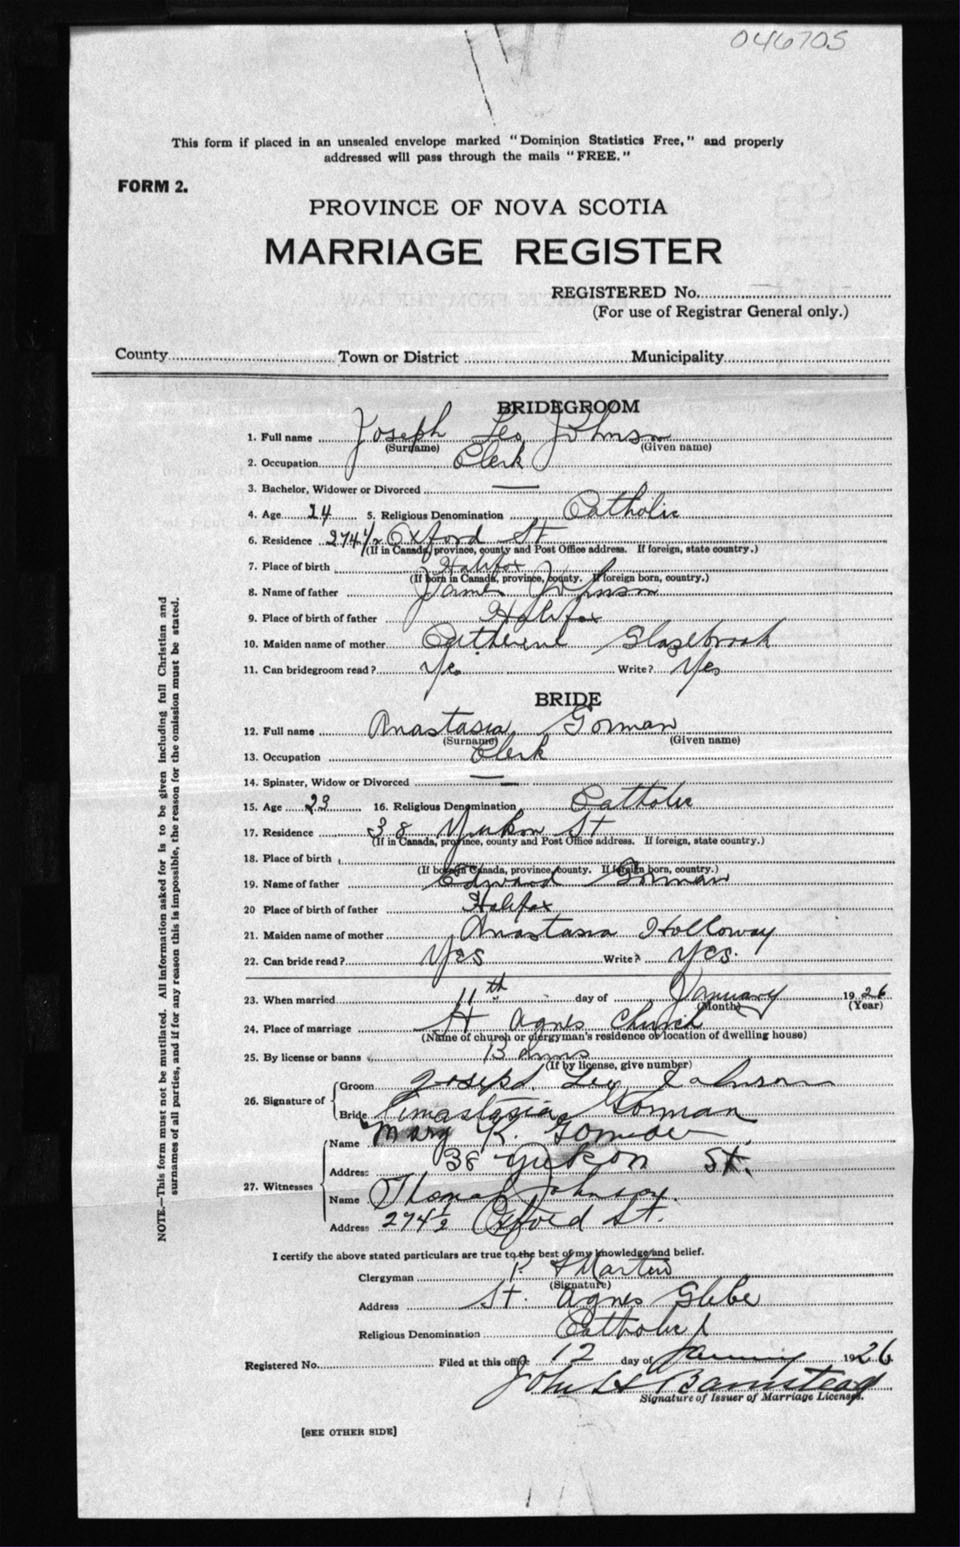 046705
This form if placed in an unsealed envelope marked "Dominion Statistics Free," and properly
addressed will pass through the mails "FREE."
FORM 2.
PROVINCE OF NOVA SCOTIA
MARRIAGE REGISTER
REGISTERED No.
(For use of Registrar General only.)
County Town or District Municipality
BRIDEGROOM
1. Full name Joseph Leo Johnson
(Surname) (Given name)
2. Occupation Clerk
3. Bachelor, Widower or Divorced —
4. Age 24 5. Religious Denomination Catholic
6. Residence 274 1/2 Oxford St
(If in Canada, province, county and Post Office address. If foreign, state country.)
7. Place of birth Halifax
(If born in Canada, province, county. If foreign born, country.)
8. Name of father James Johnson
9. Place of birth of father Halifax
10. Maiden name of mother Catherine Glazebrook
11. Can bridegroom read? Yes Write? Yes
BRIDE
12. Full name Anastasia Gorman
(Surname) (Given name)
13. Occupation Clerk
14. Spinster, Widow or Divorced —
15. Age 23 16. Religious Denomination Catholic
17. Residence 38 Yukon St
(If in Canada, province, county and Post Office address. If foreign, state country.)
18. Place of birth
(If born in Canada, province, county. If foreign born, country.)
19. Name of father Edward Gorman
20 Place of birth of father Halifax
21. Maiden name of mother Anastasia Holloway
22. Can bride read? Yes Write? Yes.
23. When married 11th day of January 1926
(Month) (Year)
24. Place of marriage St Agnes Church
(Name of church or clergyman's residence or location of dwelling house)
25. By license or banns Banns
(If by license, give number)
26. Signature of Groom Joseph Leo Johnson
Bride Anastasia Gorman
27. Witnesses Name Mary K.
Address 38 Yukon St.
Name Thomas Johnson.
Address 274 1/2 Oxford St.
I certify the above stated particulars are true to the best of my knowledge and belief.
Clergyman Martin
(Signature)
Address St. Agnes Glebe
Religious Denomination Catholic
Registered No. Filed at this office 12 day of January 1926
John H Barnstead
Signature of Issuer of Marriage Licenses.
[SEE OTHER SIDE]
NOTE.—This form must not be mutilated. All information asked for is to be given including full Christian and
surnames of all parties, and if for any reason this is impossible, the reason for the omission must be stated.